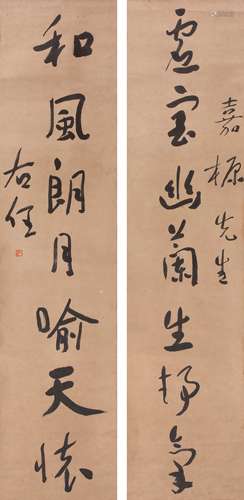 虛室幽蘭生靜氣
嘉先生
和風朗月喻天懷
右任